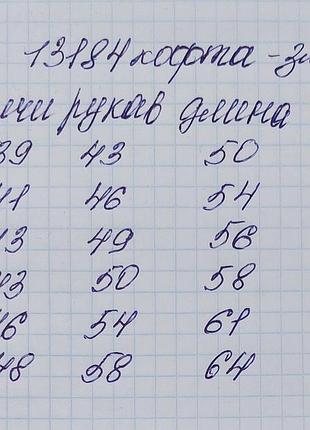 13184 кофта - зи
ечи рукав длина
39 43 50
41 46 54
43 49 56
43 50 58
46 54 61
48 58 64